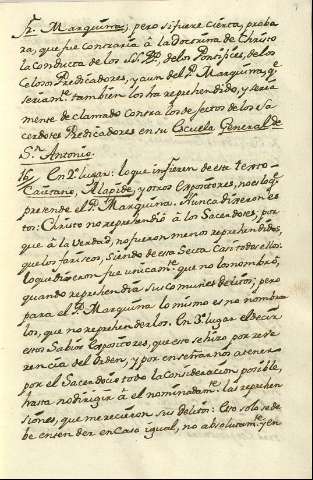 P. Marquina; pero si fuere cierta, proba
ra, que fue contraria â la Doctrina de Christo
la Conducta de los SS. PP., de los Pontifices, de los
Celosos Predicadores, y aun del P. Marquina, q.e
seriam.te tambien los ha reprehendido, y seria
mente declamado contra los defectos de los Sa
cerdotes Predicadores en su Escuela General de
S.n Antonio.
16/ En 2.º lugar: lo que infieren de este texto
Cayetano, Alapide, y otros Expositores, no es lo q.e
pretende el P. Marquina. Nunca dixeron es
to: Christo no reprehendió â los Sacerdotes, por
que â la Verdad, no fueron menos reprehendidos,
que los fariseos, siendo de esta Secta casi todos ellos:
lo que dixeron fue unicam.te que no los nombró,
quando reprehendia sus comunes delitos; pero
para el P. Marquina lo mismo es no nombra
los, que no reprehenderlos. En 3.º lugar el decir
estos Sabios Expositores, que eso se hizo por reve
rencia del Orden, y por enseñarnos a tener
por el Sacerdocio toda la Consideracion posible,
hasta no dirigir â el nominadam.te las reprehen
siones, que merecieron sus delitos: Eso solo se de
be entender en Caso igual, no absolutam.te y en